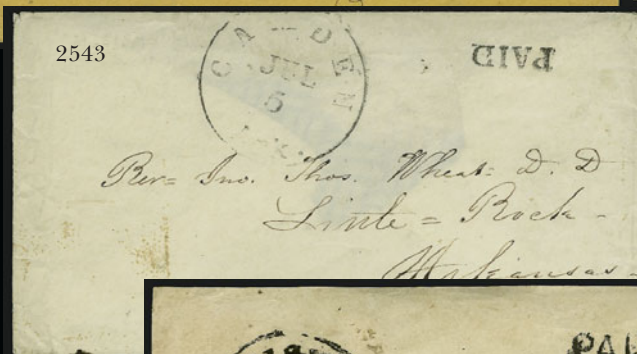 2543
CAMDEN
JUL
5
ARK.
PAID
Rev= Jno. Thos. Wheat= D. D
Little = Rock -
Arkansas -
PAI